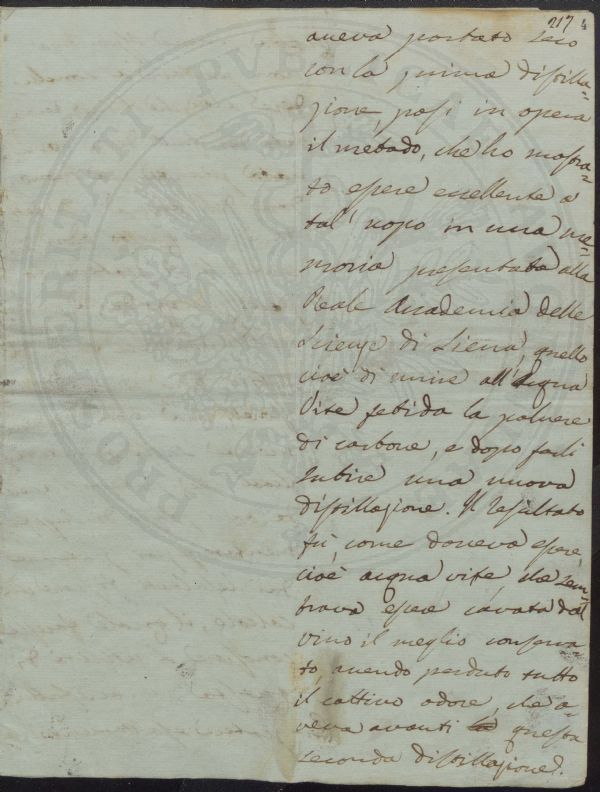 217 4
aveva portato seco
con la prima distilla=
zione, posi in opera
il metodo, che ho mostra=
to essere eccellente a
tal' uopo in una me=
moria presentata alla
Reale Accademia delle
Scienze di Siena, quello
cioè di unire all'Acqua
Vite fetida la polvere
di carbone, e dopo farli
subire una nuova
distillazione. Il resultato
fù, come doveva essere,
cioè acqua vite che sem=
brava essere cavata dal
vino il meglio conserva=
to, avendo perduto tutto
il cattivo odore, che a=
veva avanti questa
seconda distillazione.
PROSPERITATI PVBLICAE AVG